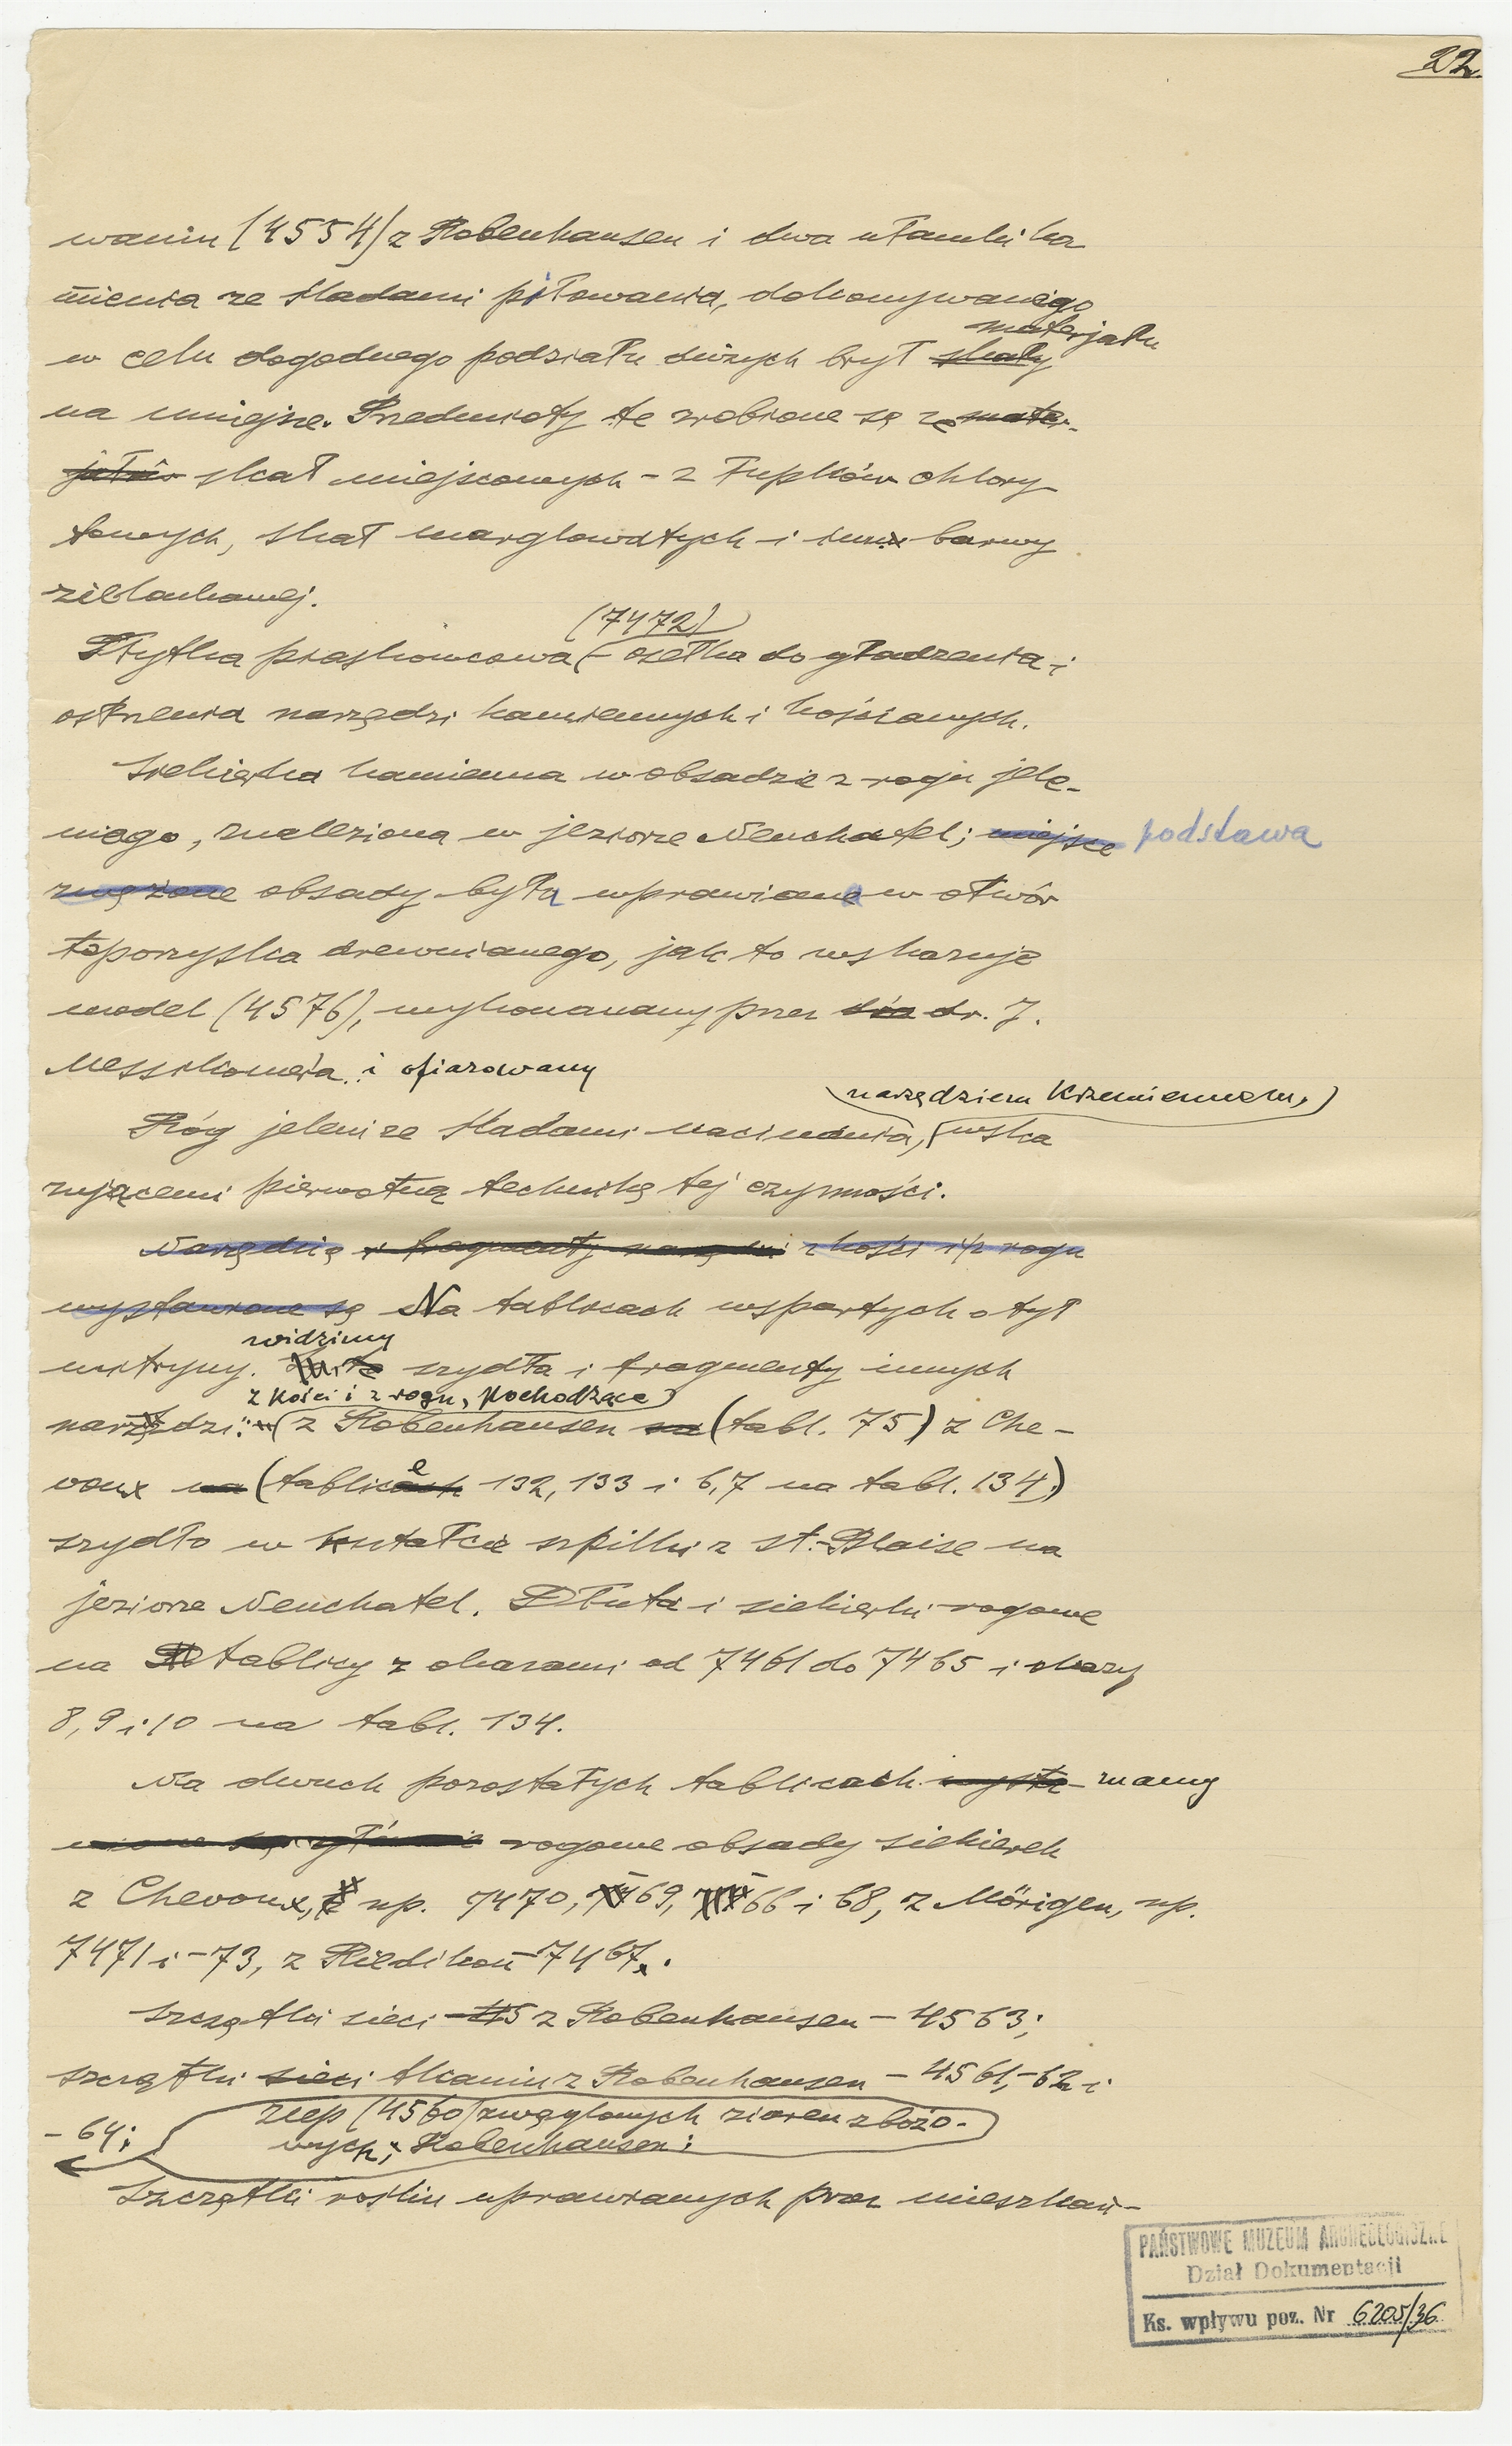 22.
waniu (4554) z Robenhausen i dwa ułamki ka
mienia ze śladami piłowania, dokonywanego
materjału
w celu dogodnego podziału dużych brył skały
na mniejsze. Przedmioty te zrobione są ze mater-
jałów skał miejscowych - z łupków chlory
towych, skał marglowatych i inn. barwy
zielonkawej.
(7472)
Płytka piaskowcowa - osełka do gładzenia i
ostrzenia narzędzi kamiennych i kościanych.
Siekierka kamienna w obsadzie z rogu jele-
niego, znaleziona w jeziorze Neuchatel; miejsce podstawa
zwężone obsady była wprawiana w otwór
toporzyska drewnianego, jak to wskazuje
model (4576), wykonanany przez dr. J.
Messikomera i ofiarowany
narzędziem krzemiennem,
Róg jeleni ze śladami nacinania, wska
zującemi pierwotną technikę tej czynności.
Narzędzia i fragmenty narzędzi z kości i z rogu
wystawione są Na tablicach wspartych o tył
widzimy
witryny. szydła i fragmenty innych
z kości i z rogu, pochodzące
narzędzi: z Robenhausen na (tabl. 75) z Che-
voux na (tablice 132, 133 i 6,7 na tabl. 134)
szydło w kształcie szpilki z st.-Blaise na
jeziorze Neuchatel. Dłuta i siekierki rogowe
na tablicy z okazami od 7461 do 7465 i okazy
8, 9 i 10 na tabl. 134.
Na dwuch pozostałych tablicach wysta- mamy
wione są głównie rogowe obsady siekierek
z Chevoux, np. 7470, -69, -66 i 68, z Mörigen, np.
7471 i -73, z Riedikon - 7467.
Szczątki sieci z Robenhausen - 4563;
szczątki sieci tkanin z Robenhausen - 4561, -62 i
- 64;
zlep (4560) zwęglonych ziaren zbożo-
wych; Robenhausen;
Szczątki roślin uprawianych przez mieszkań-
PAŃSTWOWE MUZEUM ARCHEOLOGICZNE
Dział Dokumentacji
Ks. wpływu poz. Nr 6205/36